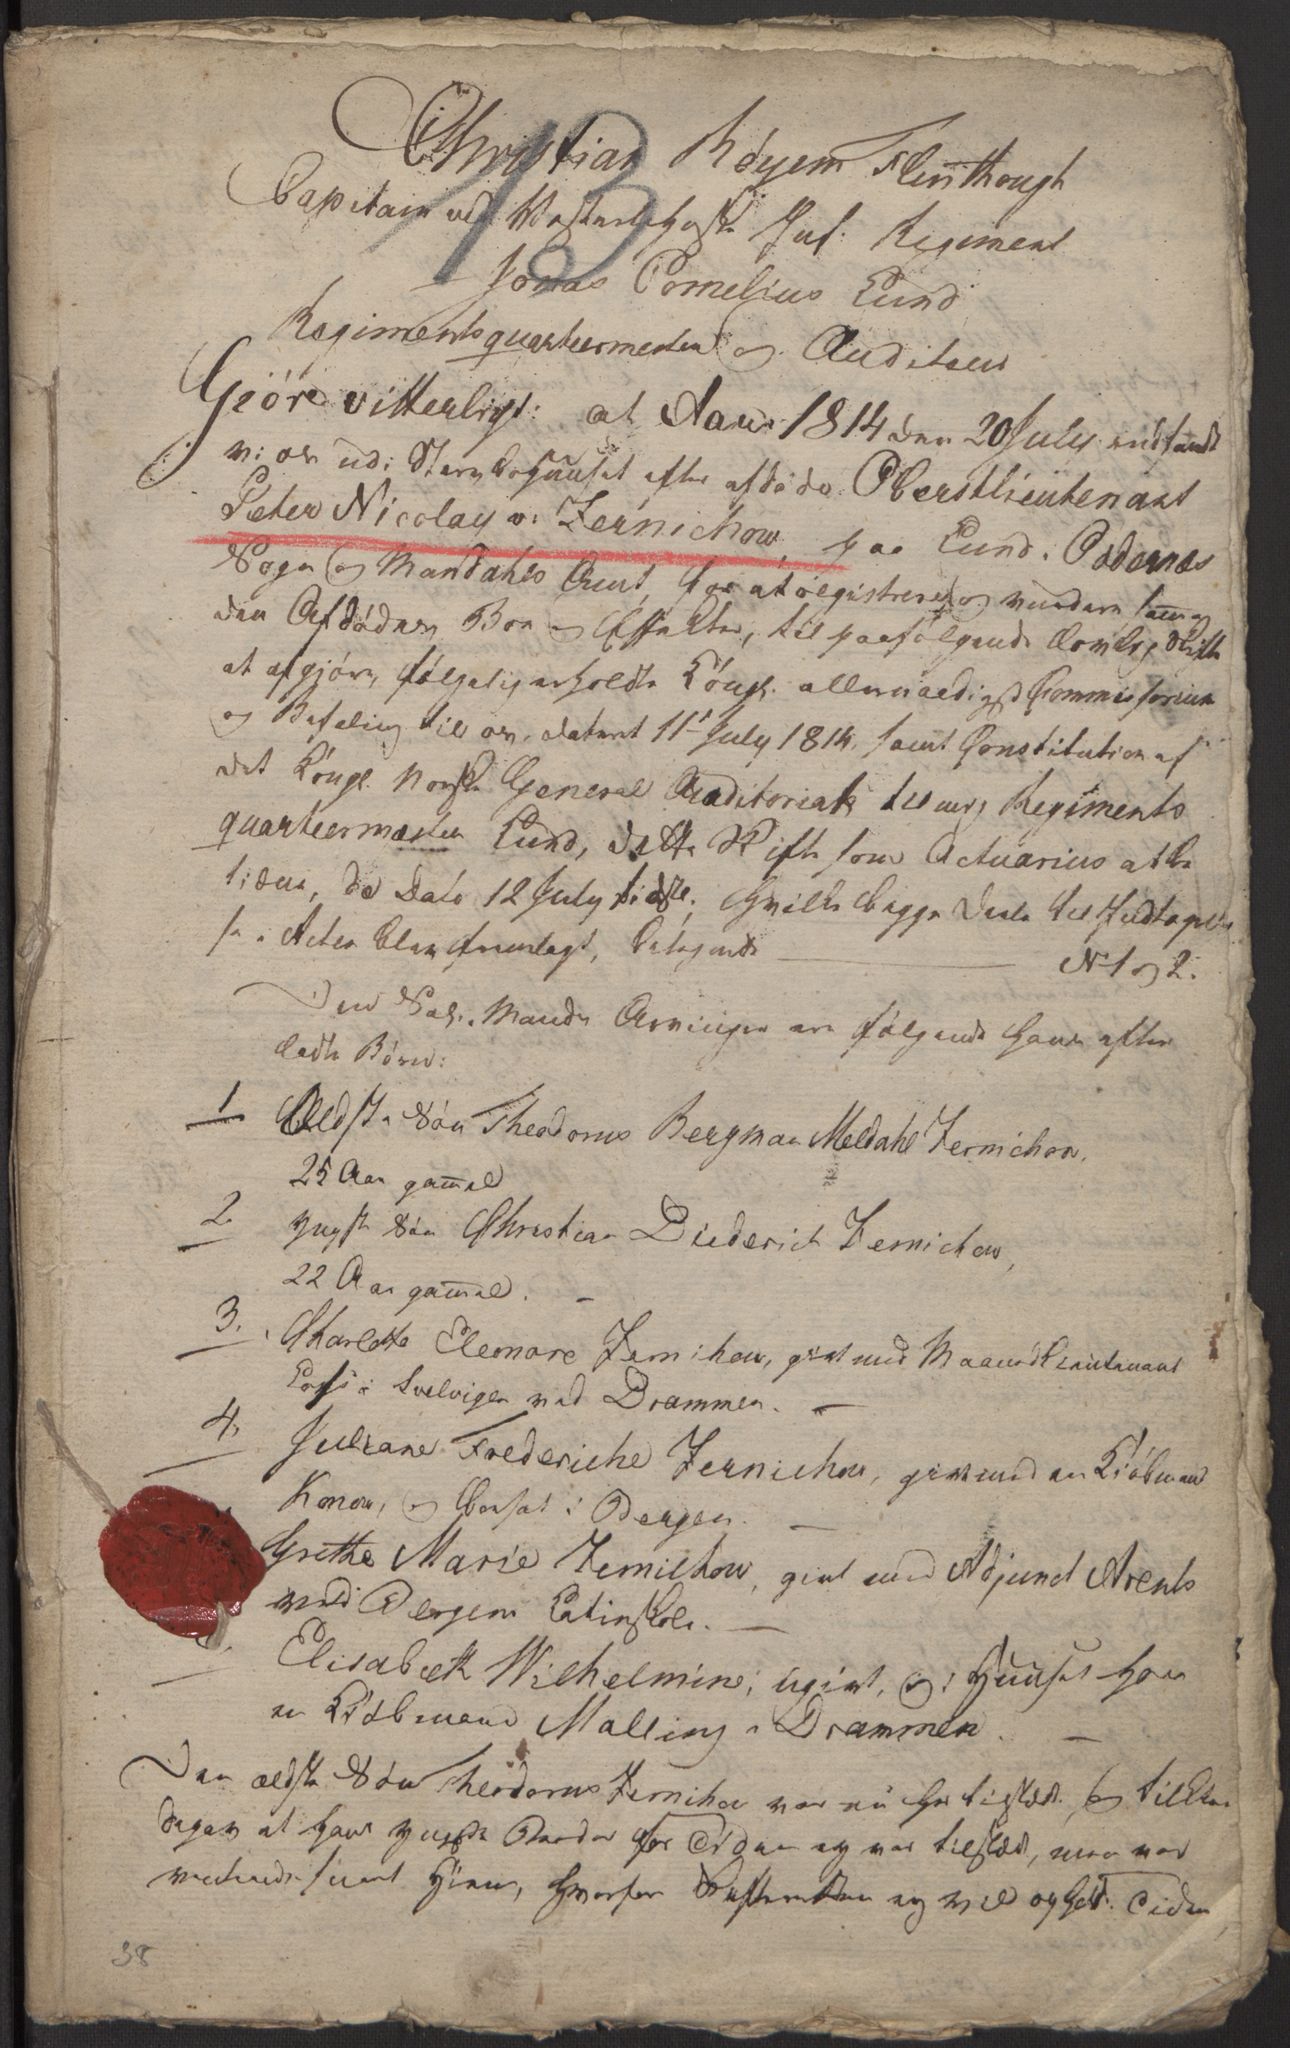 13
Christian Röyem Flinthough
Capitain ved Westerlehnske Inf: Regiment
Jonas Cornelius Lund
Regimentsquarteermester og Auditeur
Giöre vitterligt: at Aar 1814 den 20 July indfandt
vi os udi Sterboehuuset efter afdöde Oberstlieutenant
Peter Nicolay v: Zernichow, paa Lund i Oddernes
Sogn og Mandahls Amt, for at registrere og vurdere samme
den Afdödes Boe og Effecter, til paafölgende lovlig Skifte
at afgjöre, fölgelig erholdte Kongl. allernaadigst Commissorium
og Befaling til os, dateret 11te July 1814, samt Constitution af
det Kongl. Norske General Auditoriat til mig Regiments
quarteermester Lund, dette Skifte som Actuarius at be
tiene, de Dato 12 July sidstl., hvilke begge dele til Indtagelse
her i Acten blev fremlagt, lydende N 1 og 2.
Den Sal. Mands Arvinger ere fölgende hans efter
ladte Börn:
1 Ældste Sön Theodorus Bergman Meldahl Zernichow,
25 Aar gammel
2 yngste Sön Christian Diederich Zernichow,
22 Aar gammel. -
3. Charlotte Eleonore Zernichow, givt med Premierlieutenant
i Svelvigen ved Drammen. -
4, Juliane Frederiche Zernichow, givt med en Kiöbmand
Konow, og boesat i Bergen. -
Grethe Marie Zernichow, givt med Adjunct Arents
ved Bergens Latinskole. -
Elisabeth Wilhelmine, ugivt, og i Huuset hos
en Kiöbmand Malling i Drammen. -
Den ældste Sön Theodorus Zernichow var nu her tilstæde, og tilkiende
gav at hans yngste Broder for Tiden ey var tilstæde, men var
ventende snart Hiem, hvorfor Skifteretten ey vil ophold. Tiden
38